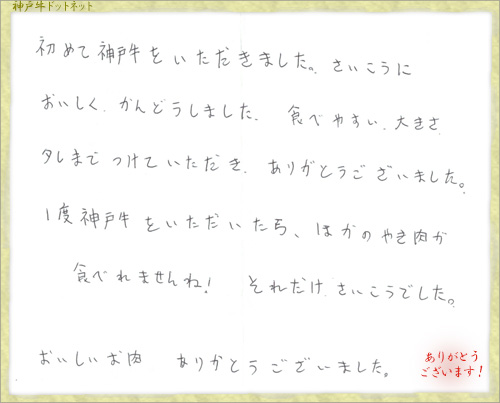 神戸牛ドットネット
初めて神戸牛をいただきました。さいこうに
おいしく、かんどうしました。食べやすい、大きさ
タレまでつけていただき、ありがとうございました。
1度神戸牛をいただいたら、ほかのやき肉が
食べれませんね!それだけ、さいこうでした。
おいしいお肉 ありがとうございました。
ありがとう
ございます!